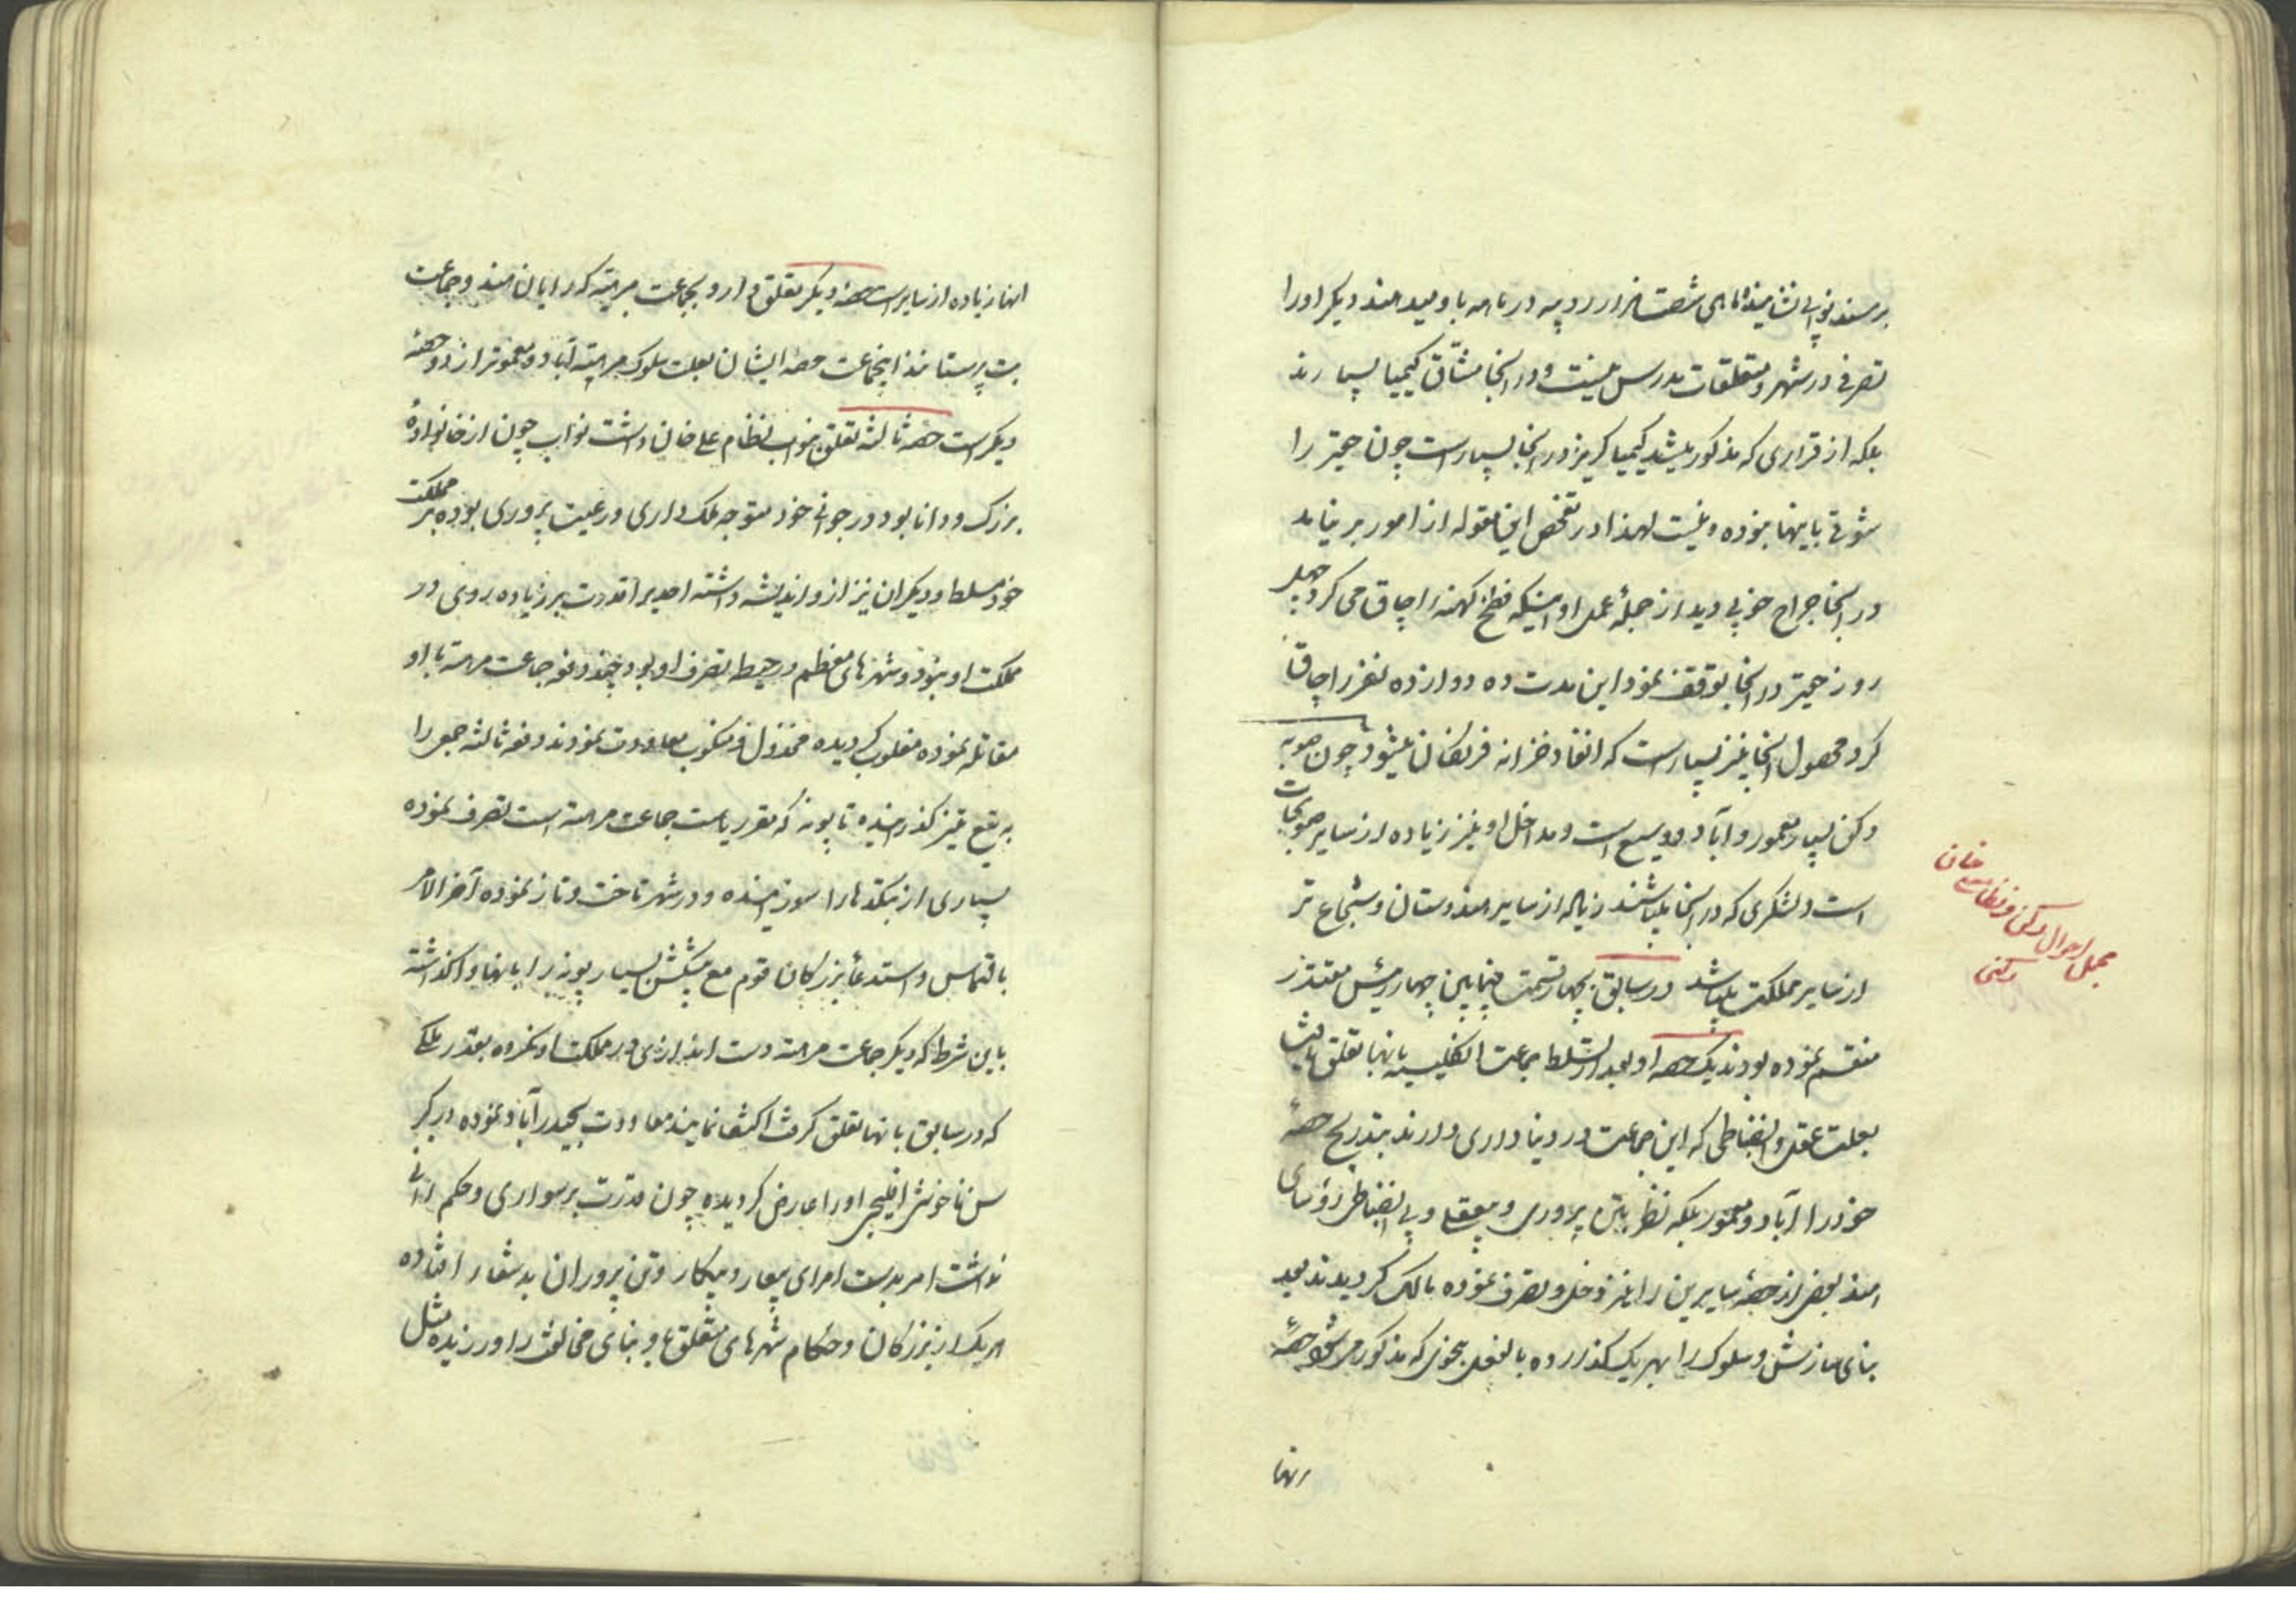 بر مسند نوابی نشانیده ماهی شصت هزار روپیه در ماه باو میدهند دیگر اورا
تصرفی در شهر و متعلقات مدرس نیست و در آنجا مشّاق کیمیا بسیارند
بلکه از قراری که مذکور میشد کیمیاگر نیز در آنجا بسیار است چون حقیر را
شوقی باینها نبوده و نیست لهذا در تفحص این مقوله از امور بر نیامد
در آنجا جراح خوبی دید از جمله عمل او اینکه نطخ کهنه را چاق می کرد چهل
روز حقیر در آنجا توقف نمود این مدت ده دوازده نفر را چاق
کرد محصول آنجا نیز بسیار است که انفاد خزانه فرنگان میشود چون صوبه
دکن بسیار معمور و آباد و وسیع است و مداخل او نیز زیاده از سایر صوبجات
است و لشکری که در آنجا میباشند زیاله از سایر هندوستان و شجاع تر
از سایر مملکت میباشد در سابق بچهار قسمت فیما بین چهار رئیس مقتدر
منقسم نموده بودند یک حصه او بعد از تسلط جماعت انگلیسیه بانها تعلق یافت
بعلت عقل و انضباطی که این جماعت در دنیا داری دارند بتدریج حصهٔ
خود را آباد و معمور بلکه نظر بتن پروری و بیعقلی و بی انضباطی رؤسای
هند بعضی از حصهٔ سایرین را نیز دخل و تصرف نموده مالک گردیدند بعد
بنای سازش و سلوک را بهر یک گذارده بالفعل بنحوی که مذکور می شود حصهٔ
انها
مجمل احوال دکن و نظام علی خان
دکنی
انها زیاده از سایر است حصه دیگر تعلق دارد بجماعت مرهته که رایان هند و جماعت
بت پرستانند اینجماعت حصه ایشان بعلت سلوک مرهته آباد و معمورتر از دو حصهٔ
دیگر است حصه ثالثه تعلق بنواب نظام علی خان داشت نواب چون از خانوادهٔ
بزرک و دانا بود در جوانی خود متوجه ملک داری و رعیت پروری بوده بر مملکت
خود مسلط و دیگران نیز از و اندیشه داشته احدیرا قدرت بر زیاده روی در
مملکت او نبود و شهرهای معظم در حیطه تصرف او بود چند دفعه جماعت مرهته با او
مقاتله نموده مغلوب گردیده مخذول و منکوب معاودت نمودند دفعه ثالثه جمعی را
به تیغ تیز گذرانیده تا پونه که مقر ریاست جماعت مرهته است تصرف نموده
بسیاری از بتکدها را سوزانیده و در شهر تاخت و تاز نموده آخر الامر
بالتماس و استدعا بزرگان قوم مع پیشکش بسیار پونه را بانها واگذاشته
باین شرط که دیگر جماعت مرهته دست اندازی در مملکت او نکرده بقدر ملکی
که در سابق بانها تعلق گرفت اکتفا نمایند معاودت بحیدرآباد نموده در کبر
سن ناخوشی افلیجی اورا عارض گردیده چون قدرت بر سواری و حکم رانی
نداشت امر بدست امرای بیعار و بیکار و تن پروران بدشعار افتاده
هر یک از بزرگان و حکام شهرهای متعلق باو بنای مخالفت را ورزیده مثل